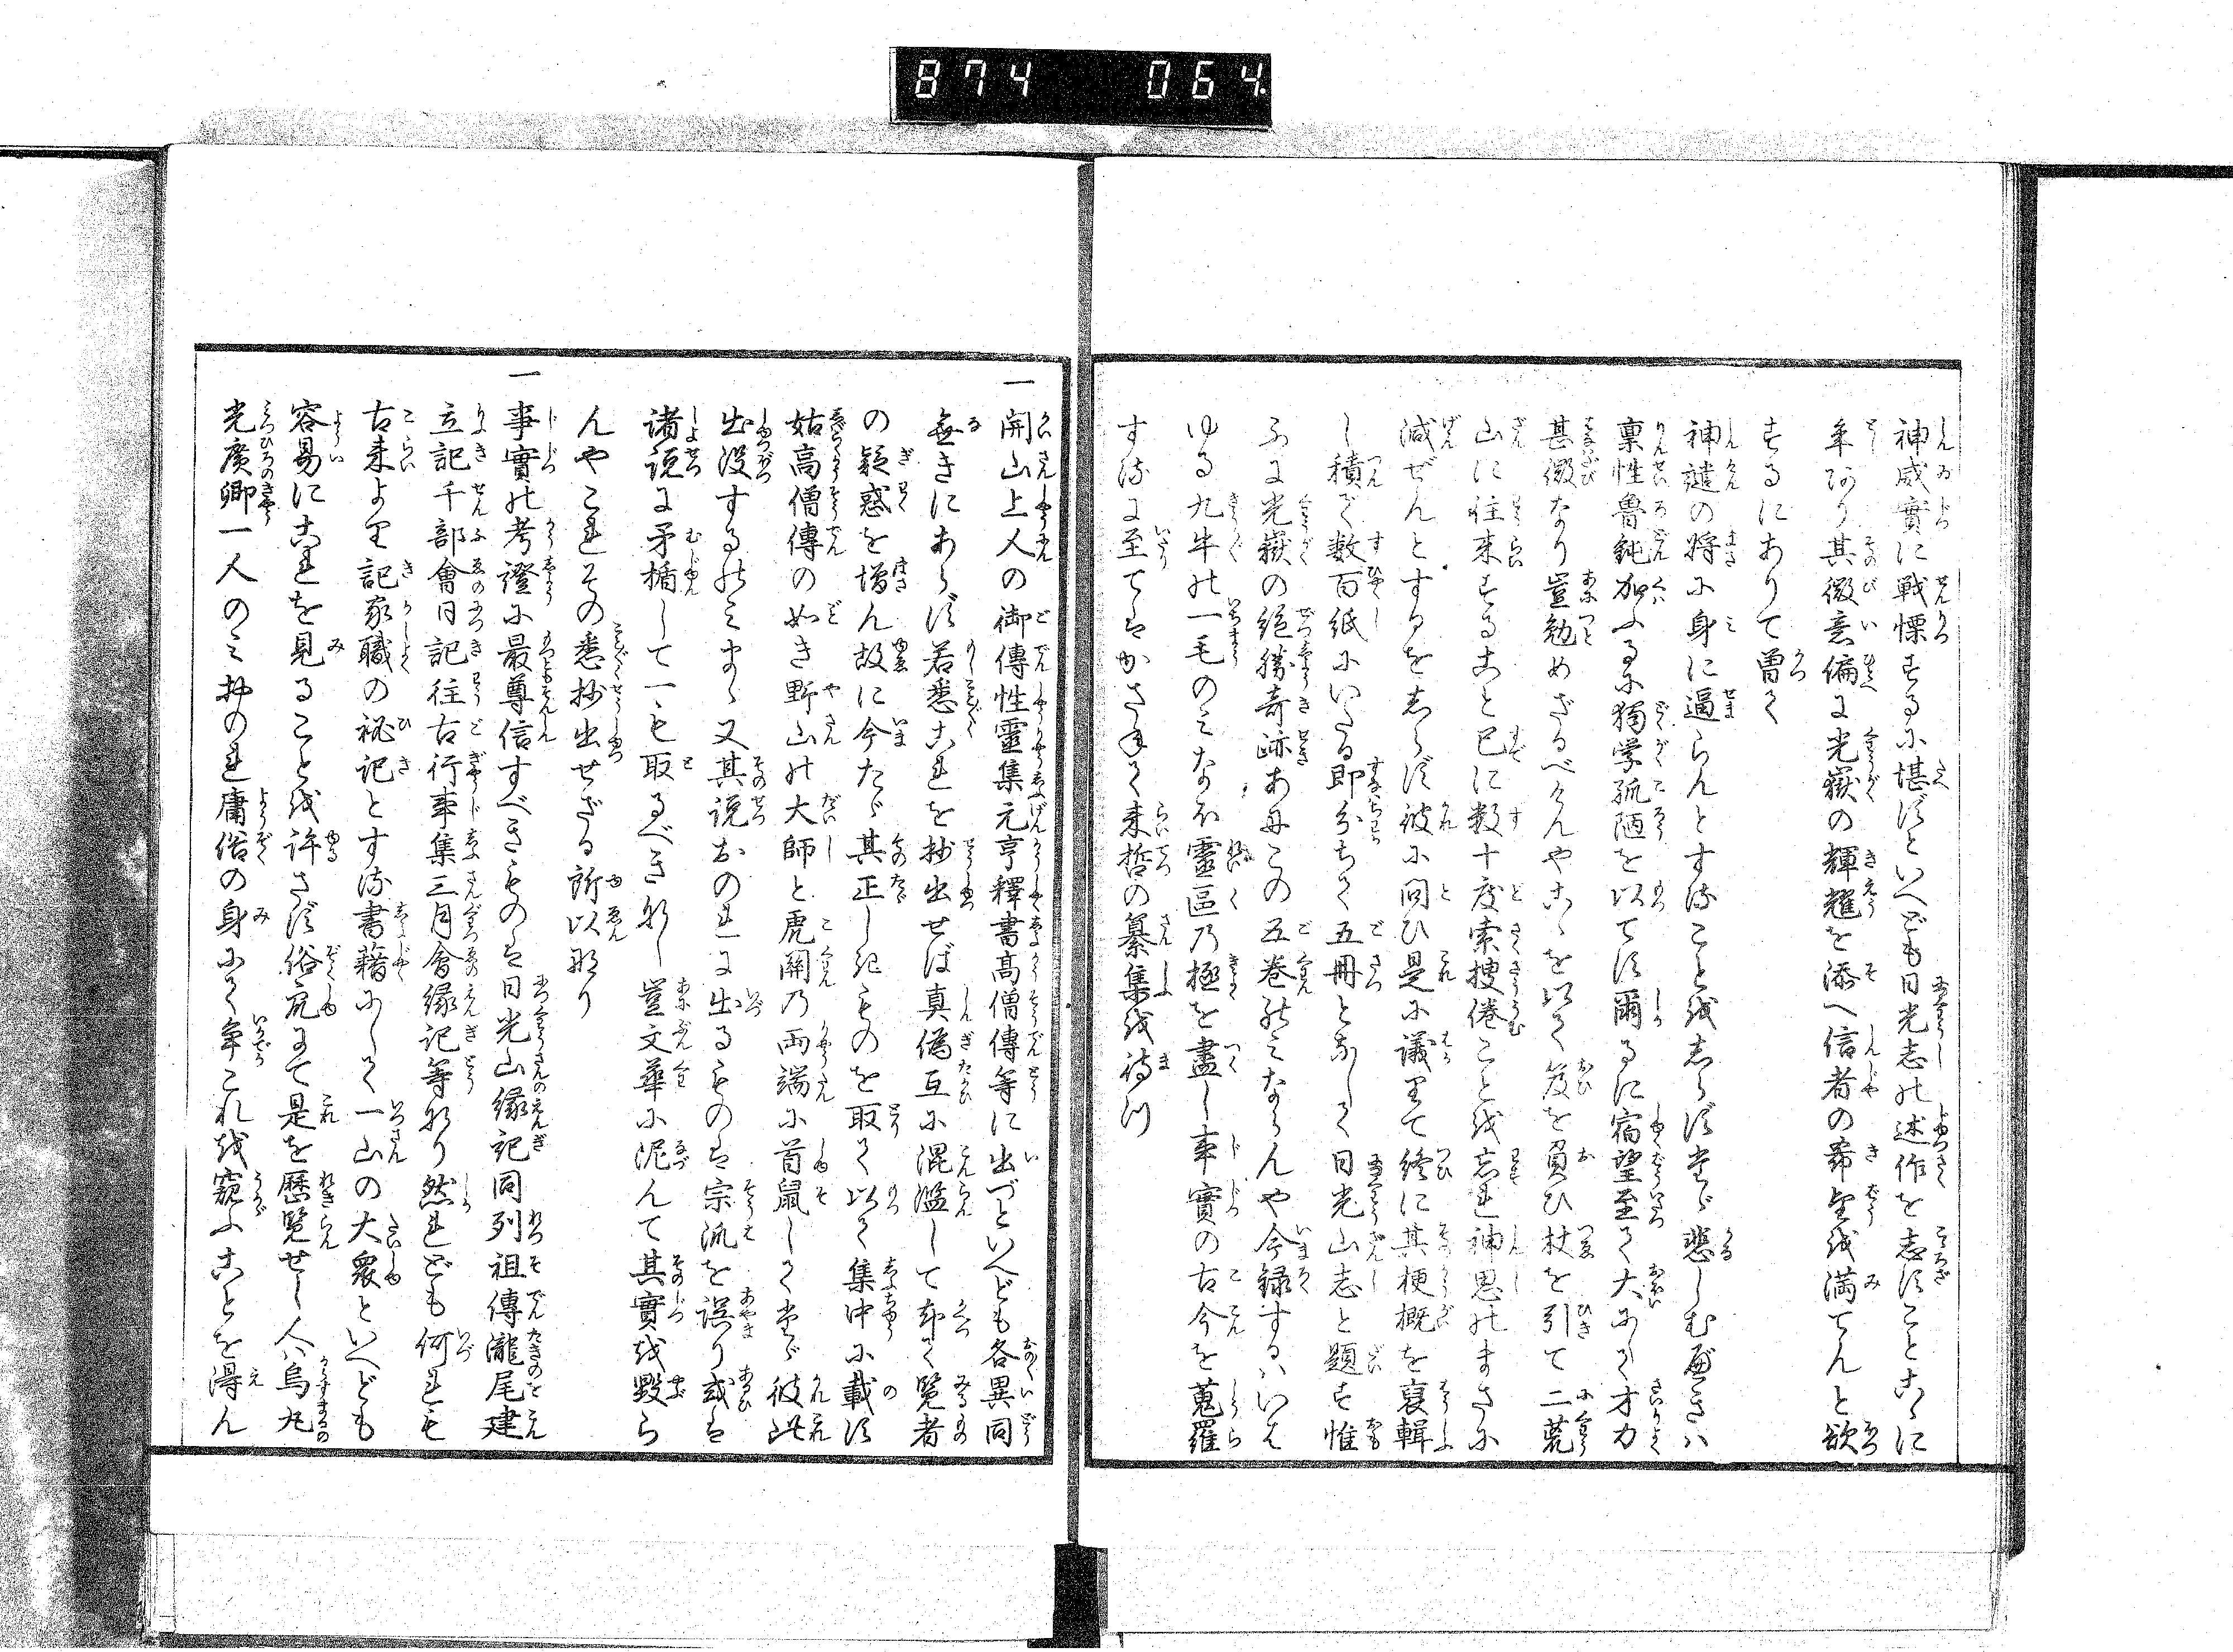 874 064
神威實に戦慄するに堪ずといへども日光志の述作を志すことこゝに
年あり其微意偏に光嶽の輝耀を添へ信者の希望を満てんと欲
するにありて曽て
神譴の将に身に逼らんとすることをしらず堂ゞ悲しむべきハ
稟性魯鈍加ふるに獨学孤陋を以てす爾るに宿望至て大にして才力
甚微なり豈勉めざるべけんやこゝを以て笈を負ひ杖を引て二荒
山に往来すること已に数十度索捜倦ことを忘れ神思のまさに
減ぜんとするをしらず彼に問ひ是に議りて終に其梗概を裒輯
し積で数百紙にいたる即分ちて五冊となして日光山志と題す惟
ふに光嶽の絶勝奇跡あにこの五巻のみならんや今録するハいは
ゆる九牛の一毛のみなほ靈區乃極を盡し事實の古今を蒐羅
するに至てはかさねて来哲の纂集を待つ
一開山上人の御傳性靈集元亨釋書高僧傳等に出づといへども各異同
無きにあらず若悉これを抄出せば真偽互に混濫して却て覧者
の疑惑を増ん故に今たゞ其正しきものを取て以て集中に載す
姑高僧傳の如き野山の大師と虎關乃両端に首鼠してたゞ彼此
出没するのみまゝ又其説おのれに出るものは宗派を誤り或は
諸説に矛楯して一も取るべきなし豈文華に泥んて其實を毀ら
んやこれその悉抄出せざる所以なり
一事實の考證に最尊信すべきものは日光山縁記同列祖傳瀧尾建
立記千部會日記往古行事集三月會縁記等なり然れども何れも
古来より記家職の祕記とする書籍にして一山の大衆といへども
容易にこれを見ることを許さず俗家にて是を歴覧せし人ハ烏丸
光廣卿一人のみ抑のれ庸俗の身にて争これを窺ふことを得ん